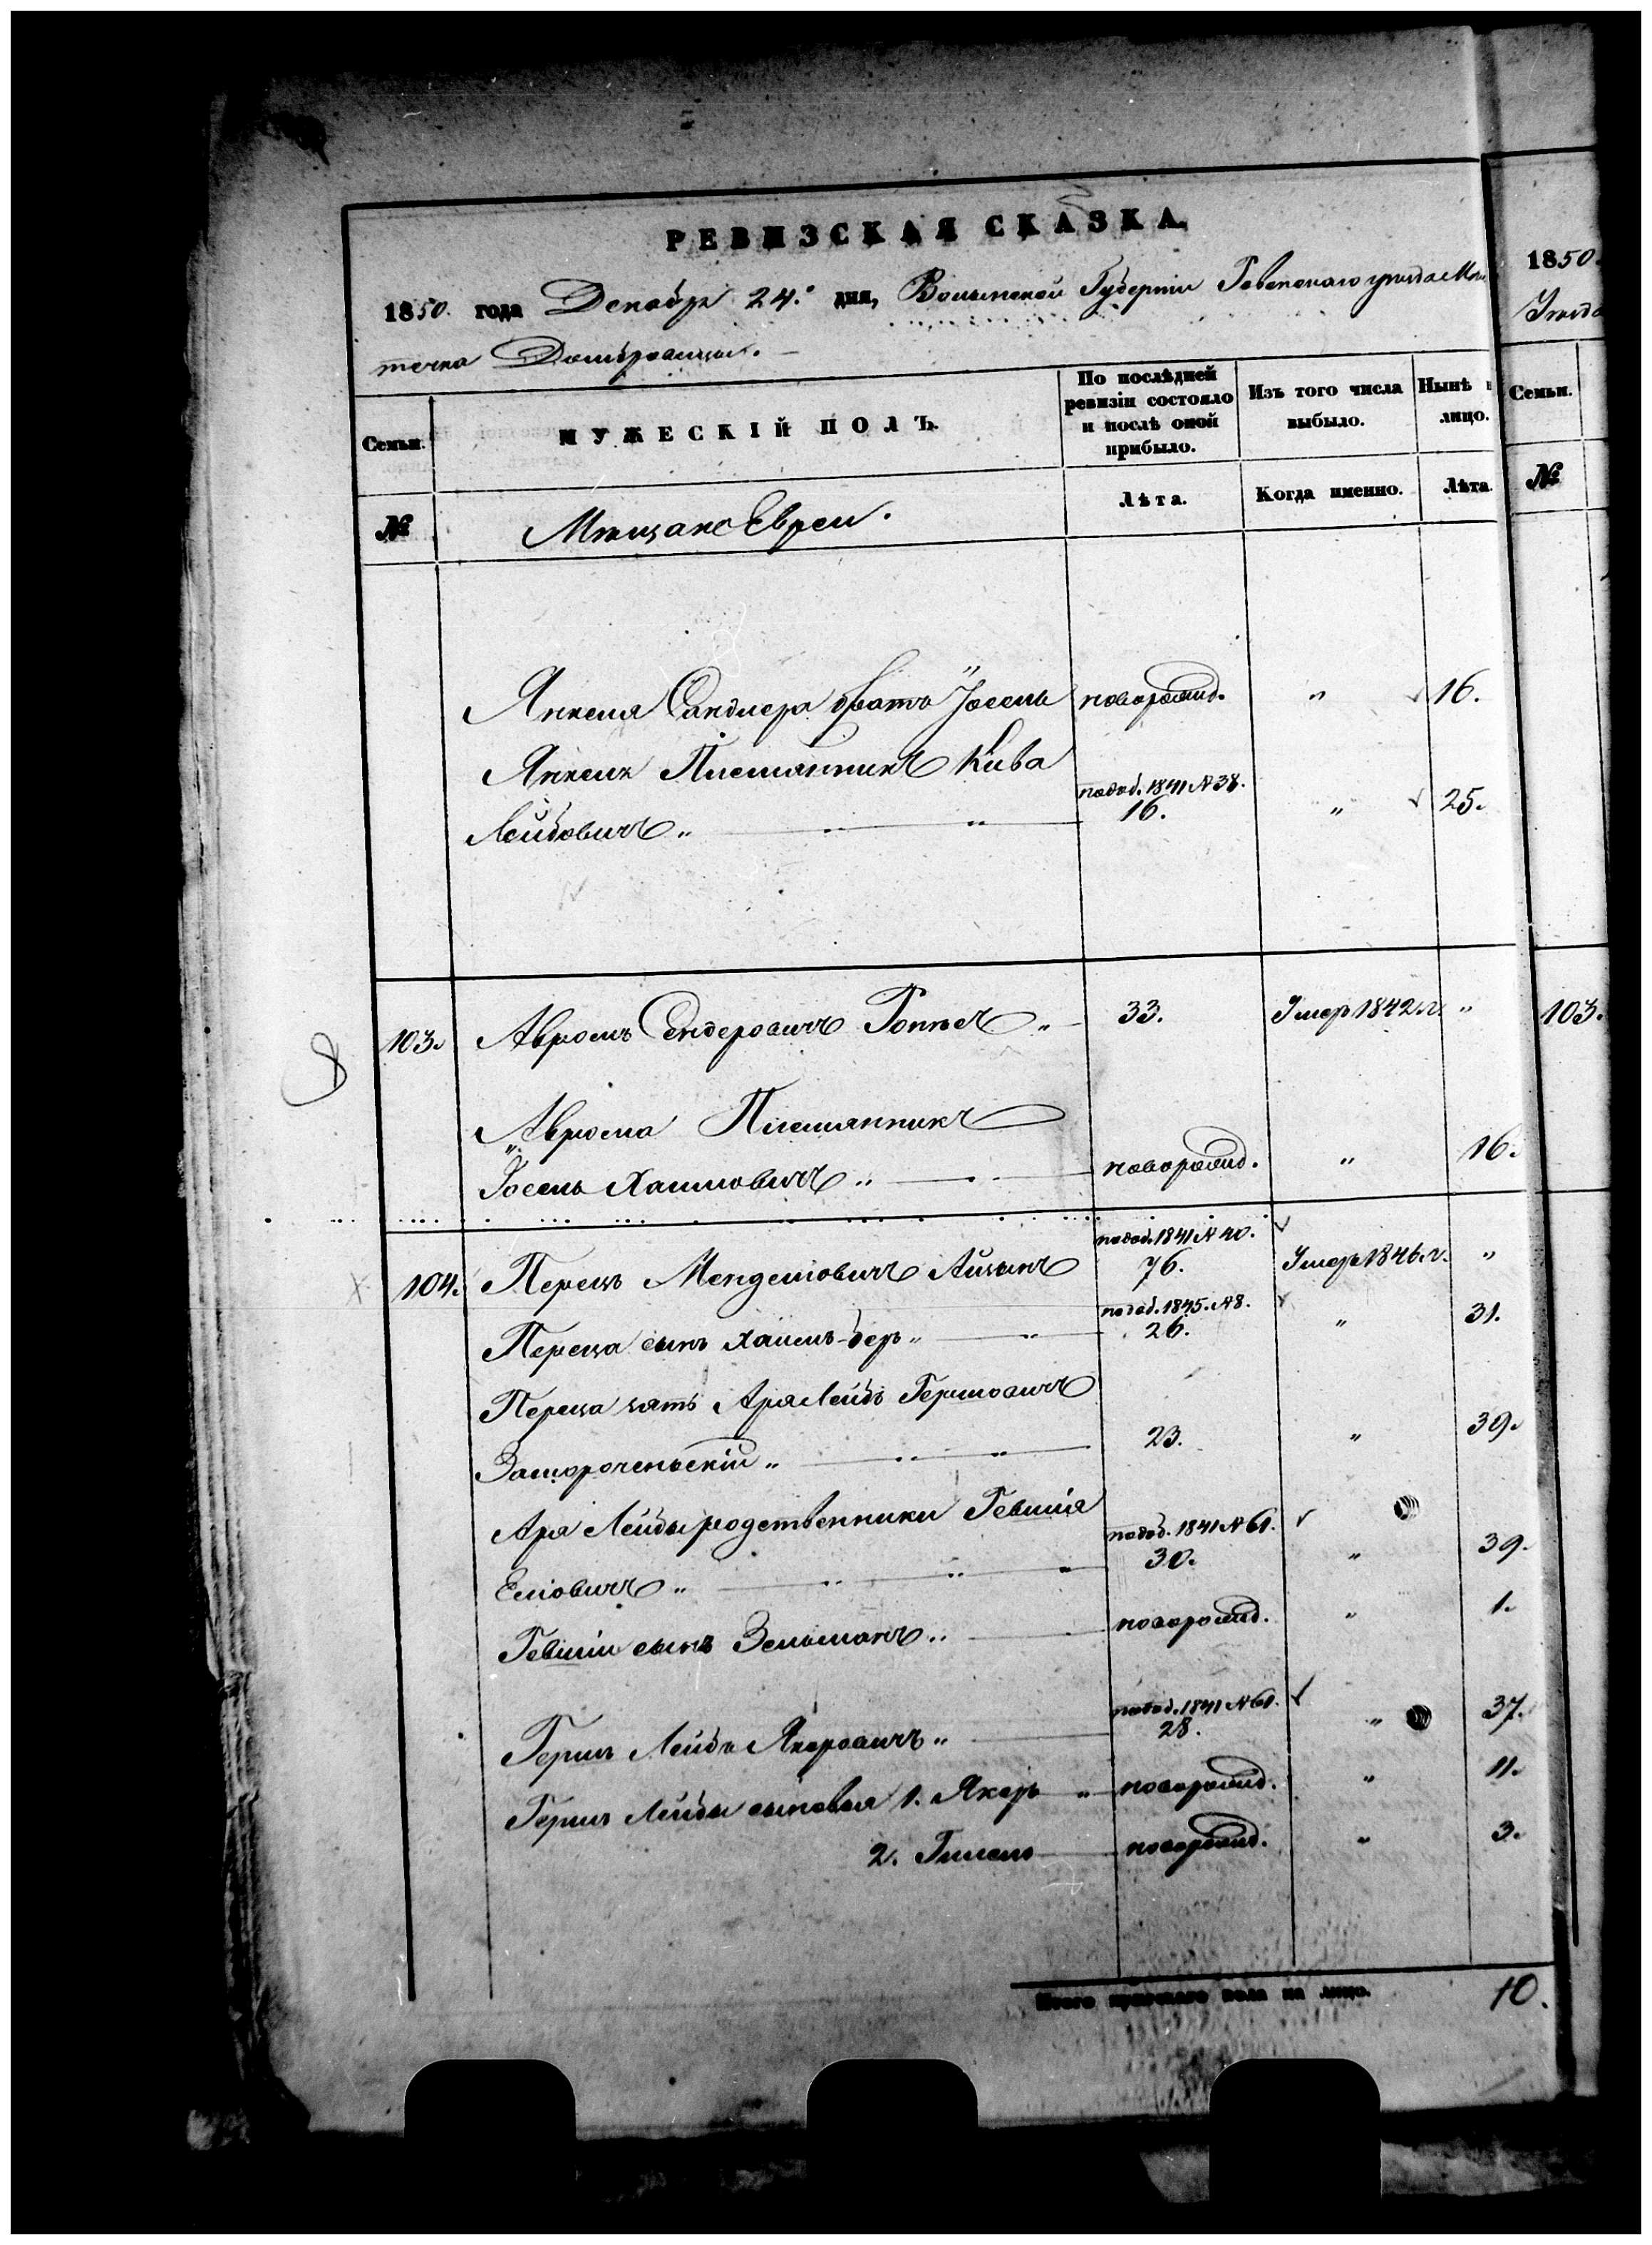 РЕВИЗСКАЯ СКАЗКА.
1850. года Декабря 24.º дня, Волынской Губерніи Ровенскаго уѣзда Мѣс
течка Домбровицы.
1850.
Уѣзда
Семьи.
МУЖЕСКІЙ ПОЛЪ.
По послѣдней ревизіи состояло и послѣ оной прибыло.
Изъ того числа выбыло.
Нынѣ н лицо.
Семьи.
№
Мѣщане Евреи.
Лѣта.
Когда именно.
Лѣта.
№
Янкеля Сандлера братъ Іосель новорожд. " 16.
Янкеля Племянникъ Кива
Лейбовичъ " подоб. 1841 №38. 16. " 25.
103. Авромъ Сендеровичъ " 33. Умеръ 1842 г. " 103.
Аврома Племянникъ
Іосель Хаимовичъ " новорожд. " 16.
104. Перецъ Менделовичъ Айзынъ подоб. 1841 №40. 76. Умеръ 1846. г. "
Переца сынъ Хаимъ-беръ " подоб. 1845. №8. 26. " 31.
Переца зять Аря Лейбъ Гершовичъ
23. " 39.
Аря Лейбы родственники Гевшія
Еліовичъ " подоб. 1841 №61. 30. " 39.
Гевшіи сынъ Зельманъ " новорожд. " 1.
Гершъ Лейбъ Якеровичъ " подоб. 1841 №61. 28. " 37.
Гершъ Лейбы сыновья 1. Якеръ " новорожд. " 11.
2. Гилель новорожд. " 3.
Итого мужескаго пола на лицо. 10.